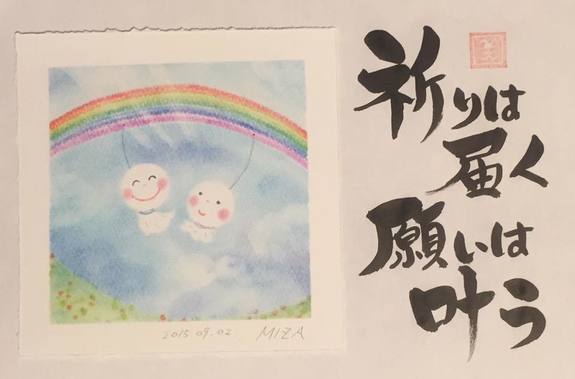 祈りは
届く
願いは
叶う
2015.09.02 MIZA